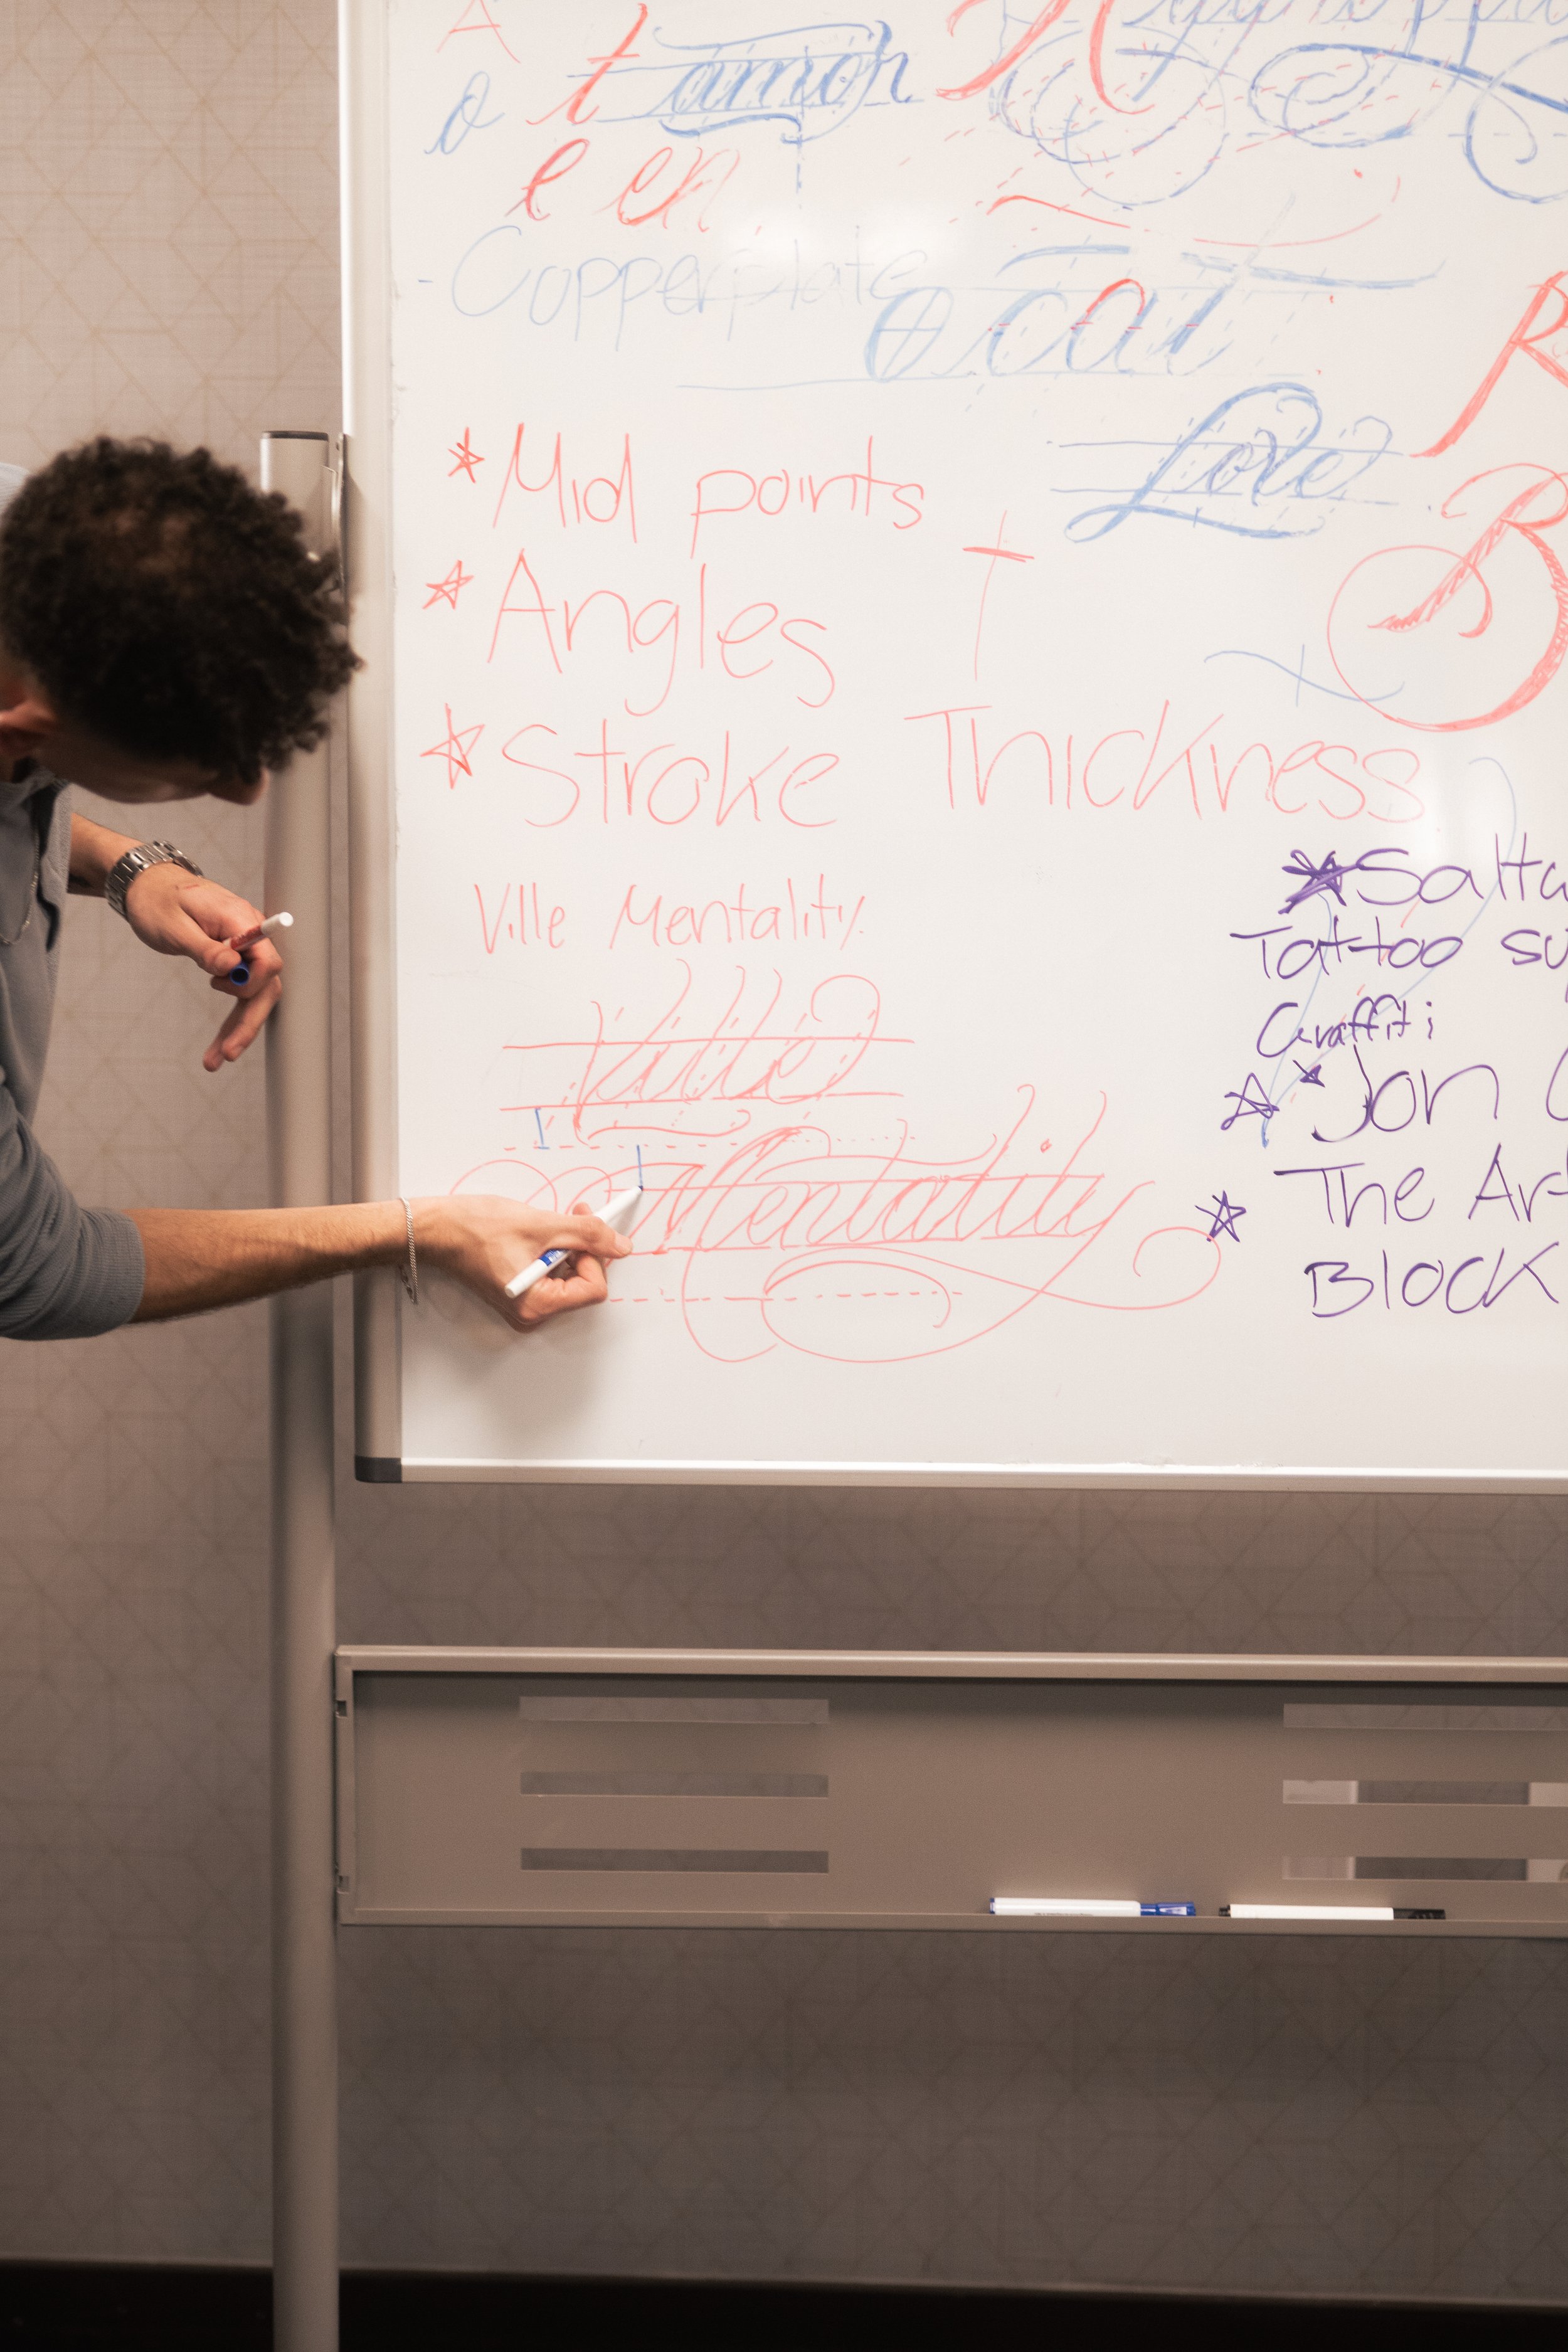 A
o t amor
e en
- Copperplate
o cat
R
Love
* Mid points
B
* Angles
* Stroke Thickness
Ville Mentality
Ville
Mentality
Tattoo
Graffiti
Jon
The Art
Block